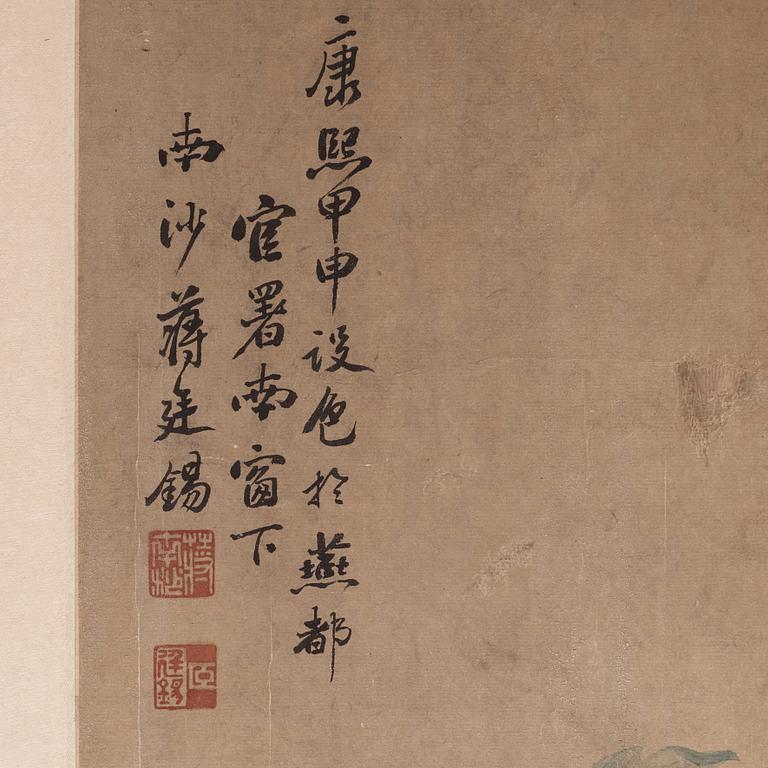 康熙甲申设色於燕都
官署南窗下
南沙蒋廷錫
臣廷錫